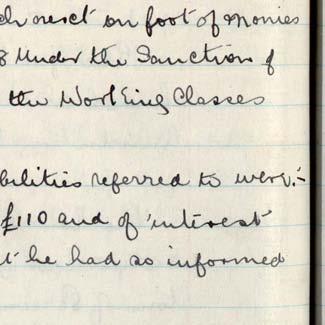 on foot of monies
Under the Sanction of
the Working Classes
bilities referred to were:-
£110 and of 'interest'
he had so informed